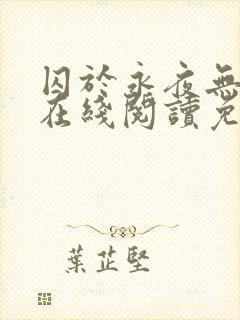 囚於永夜無
在綫閱讀免
葉芷堅